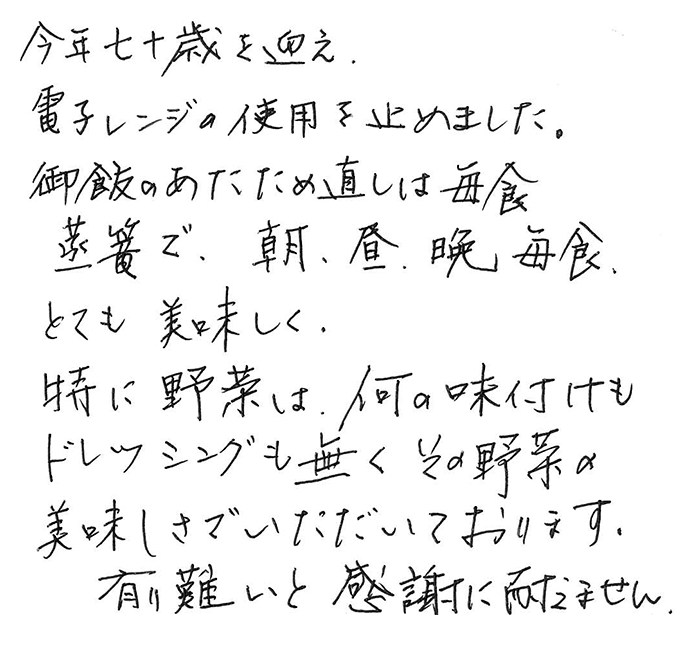 今年七十歳を迎え、
電子レンジの使用を止めました。
御飯のあたため直しは毎食
蒸篭で、朝、昼、晩、毎食、
とても美味しく、
特に野菜は、何の味付けも
ドレッシングも無くその野菜の
美味しさでいただいております。
有り難いと感謝に耐えません。